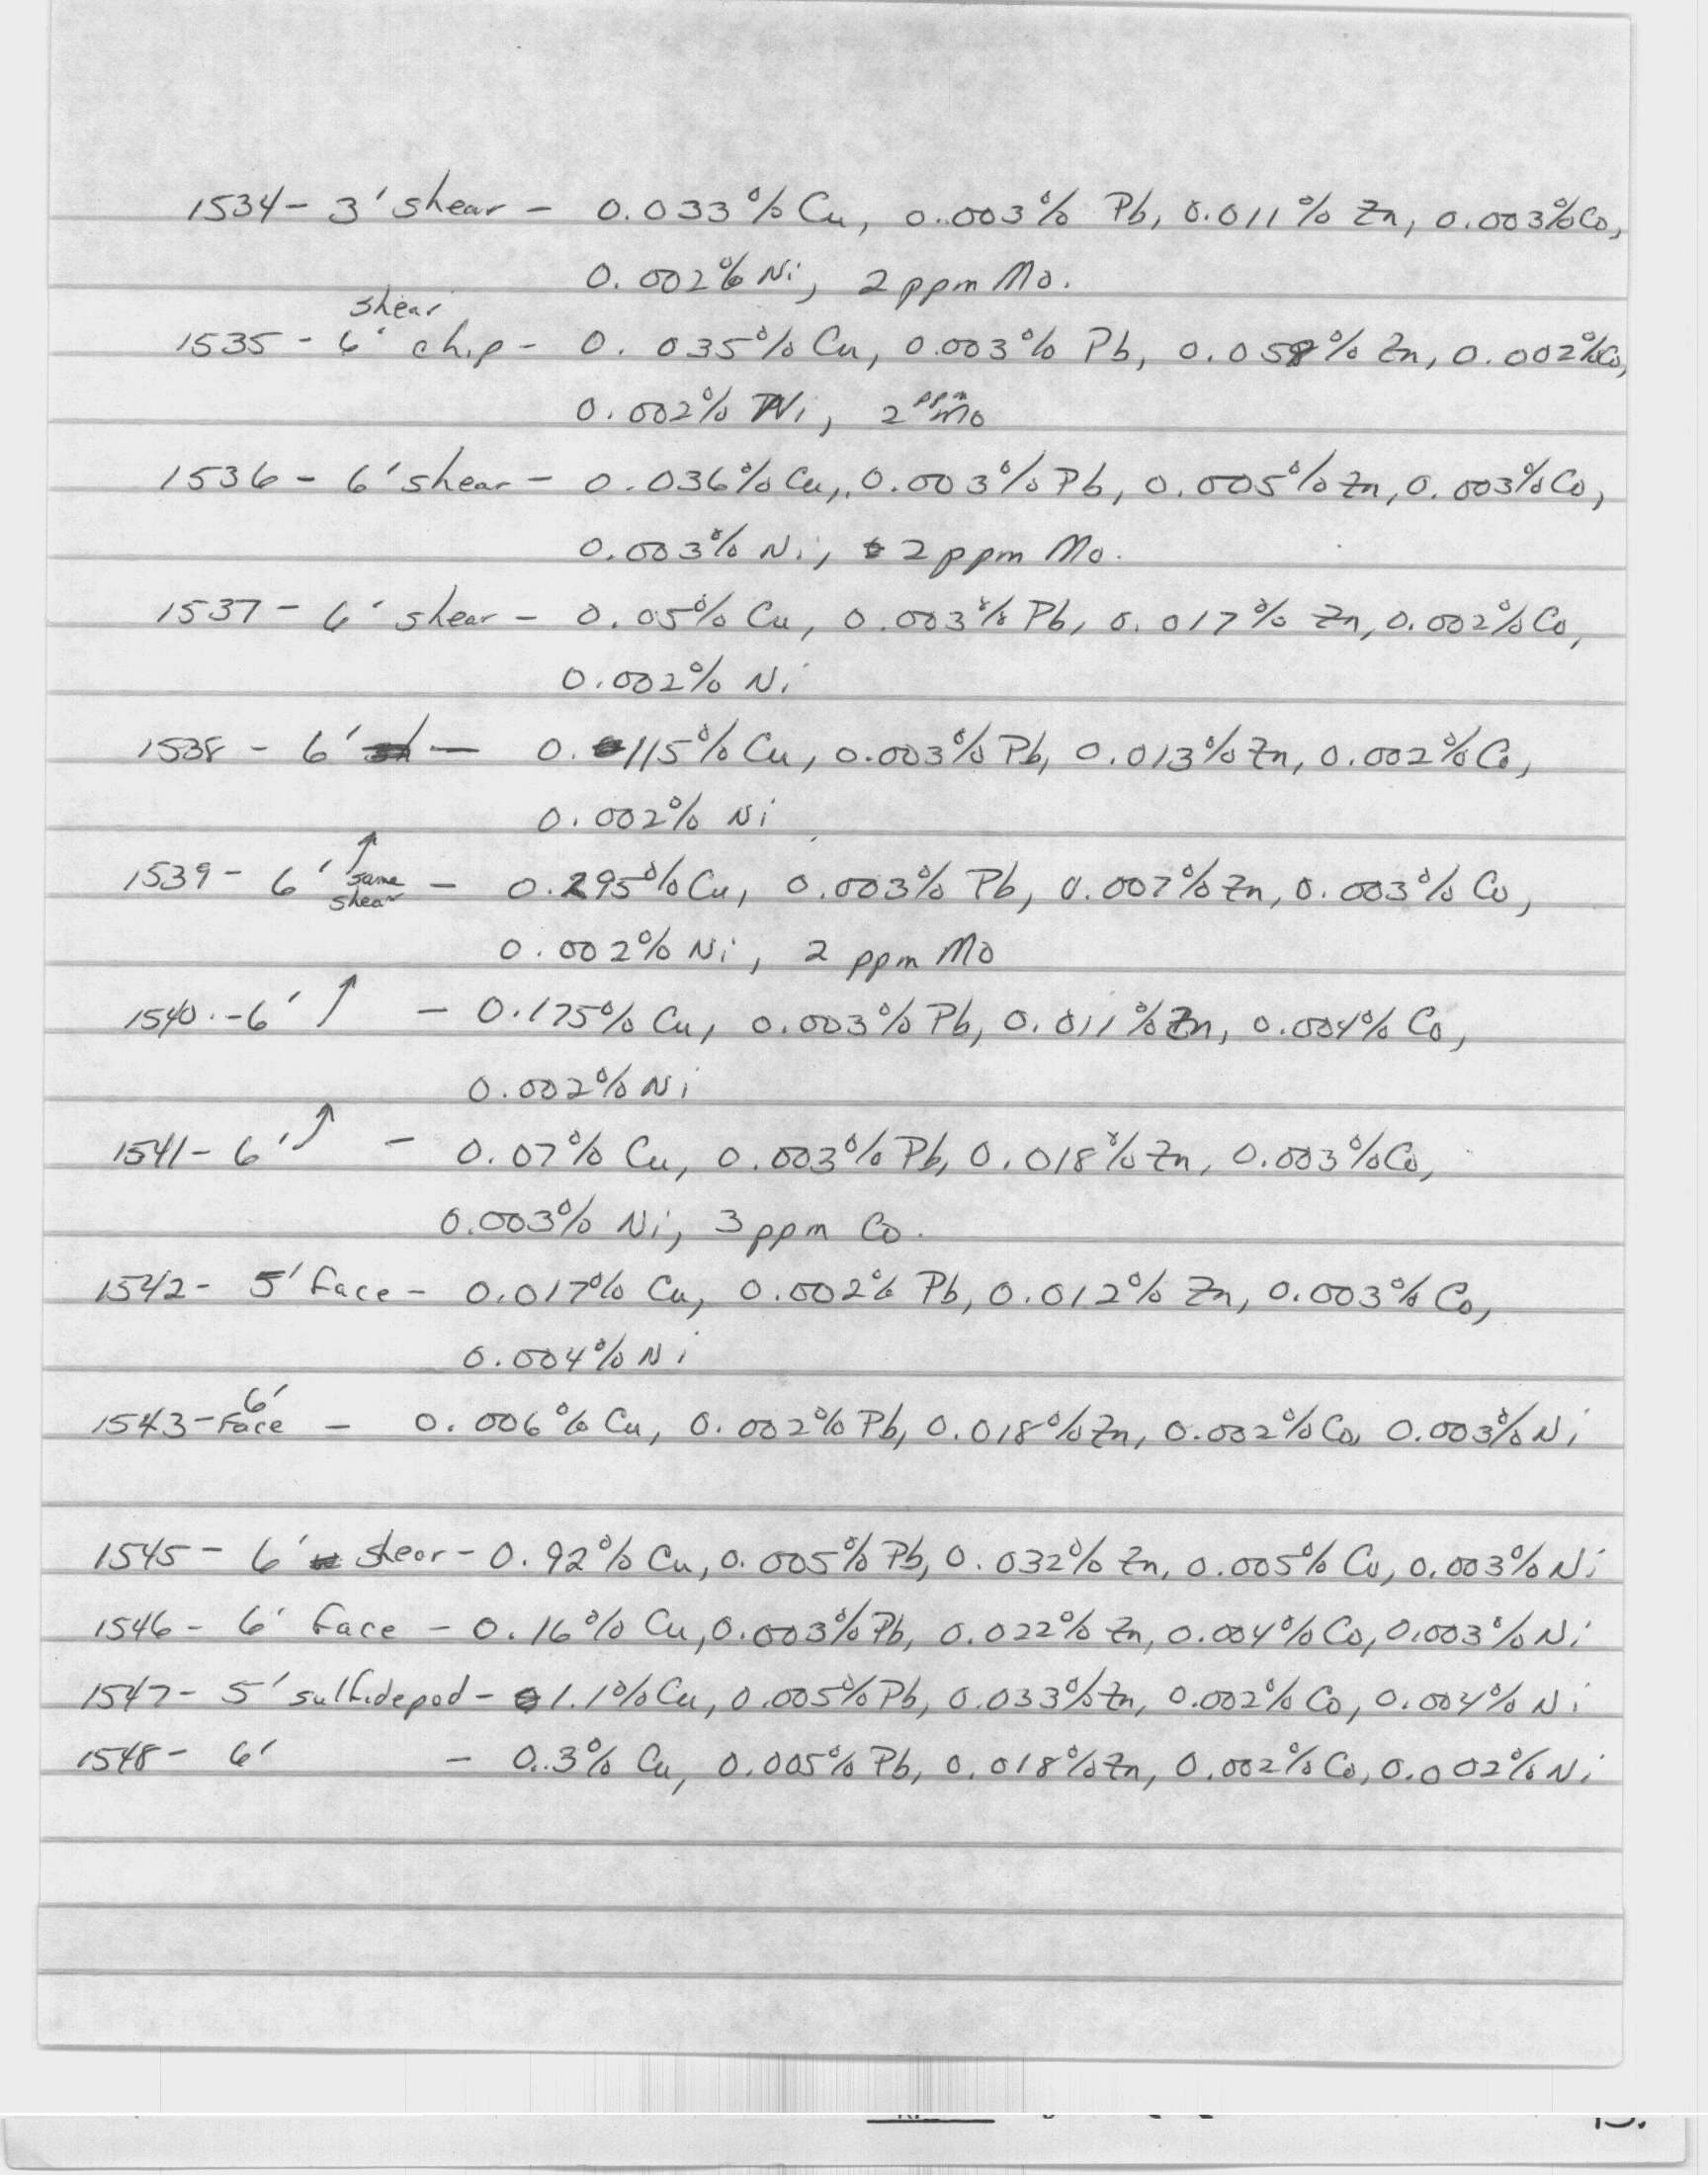 1534 - 3' shear - 0.033% Cu, 0.003% Pb, 0.011% Zn, 0.003% Co,
0.002% Ni, 2 ppm Mo.
shear
1535 - 6' chip - 0.035% Cu, 0.003% Pb, 0.058% Zn, 0.002% Co,
0.002% Ni, 2 ppm Mo
1536 - 6' shear - 0.036% Cu, 0.003% Pb, 0.005% Zn, 0.003% Co,
0.003% Ni, 2 ppm Mo.
1537 - 6' shear - 0.05% Cu, 0.003% Pb, 0.017% Zn, 0.002% Co,
0.002% Ni
1538 - 6' - 0.115% Cu, 0.003% Pb, 0.013% Zn, 0.002% Co,
0.002% Ni
1539 - 6' ↑ same shear - 0.295% Cu, 0.003% Pb, 0.007% Zn, 0.003% Co,
0.002% Ni, 2 ppm Mo
1540 - 6' ↑ - 0.175% Cu, 0.003% Pb, 0.011% Zn, 0.004% Co,
0.002% Ni
1541 - 6' ↑ - 0.07% Cu, 0.003% Pb, 0.018% Zn, 0.003% Co,
0.003% Ni, 3 ppm Co.
1542 - 5' face - 0.017% Cu, 0.002% Pb, 0.012% Zn, 0.003% Co,
0.004% Ni
1543 - 6' Face - 0.006% Cu, 0.002% Pb, 0.018% Zn, 0.002% Co, 0.003% Ni
1545 - 6' shear - 0.92% Cu, 0.005% Pb, 0.032% Zn, 0.005% Co, 0.003% Ni
1546 - 6' face - 0.16% Cu, 0.003% Pb, 0.022% Zn, 0.004% Co, 0.003% Ni
1547 - 5' sulfidepod - 1.1% Cu, 0.005% Pb, 0.033% Zn, 0.002% Co, 0.004% Ni
1548 - 6' - 0.3% Cu, 0.005% Pb, 0.018% Zn, 0.002% Co, 0.002% Ni